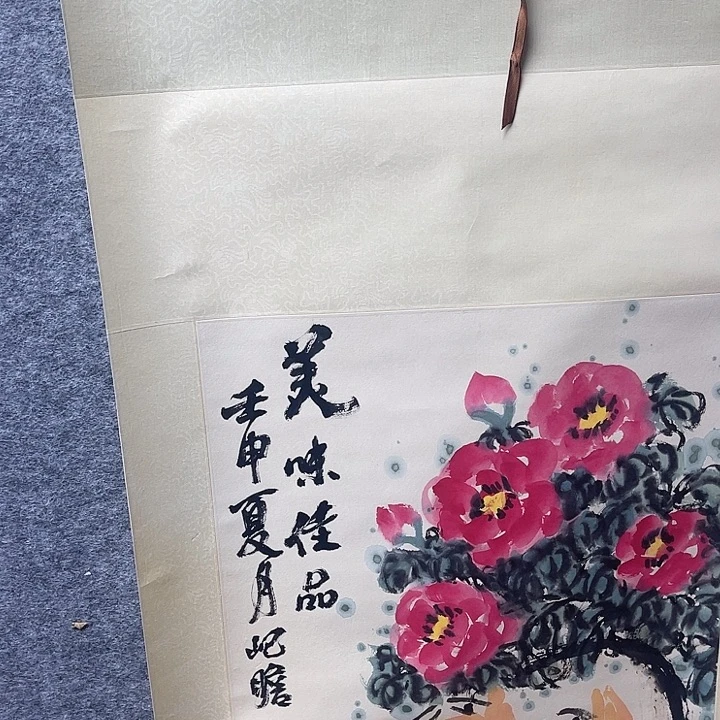 美味佳品
壬申夏月屺瞻